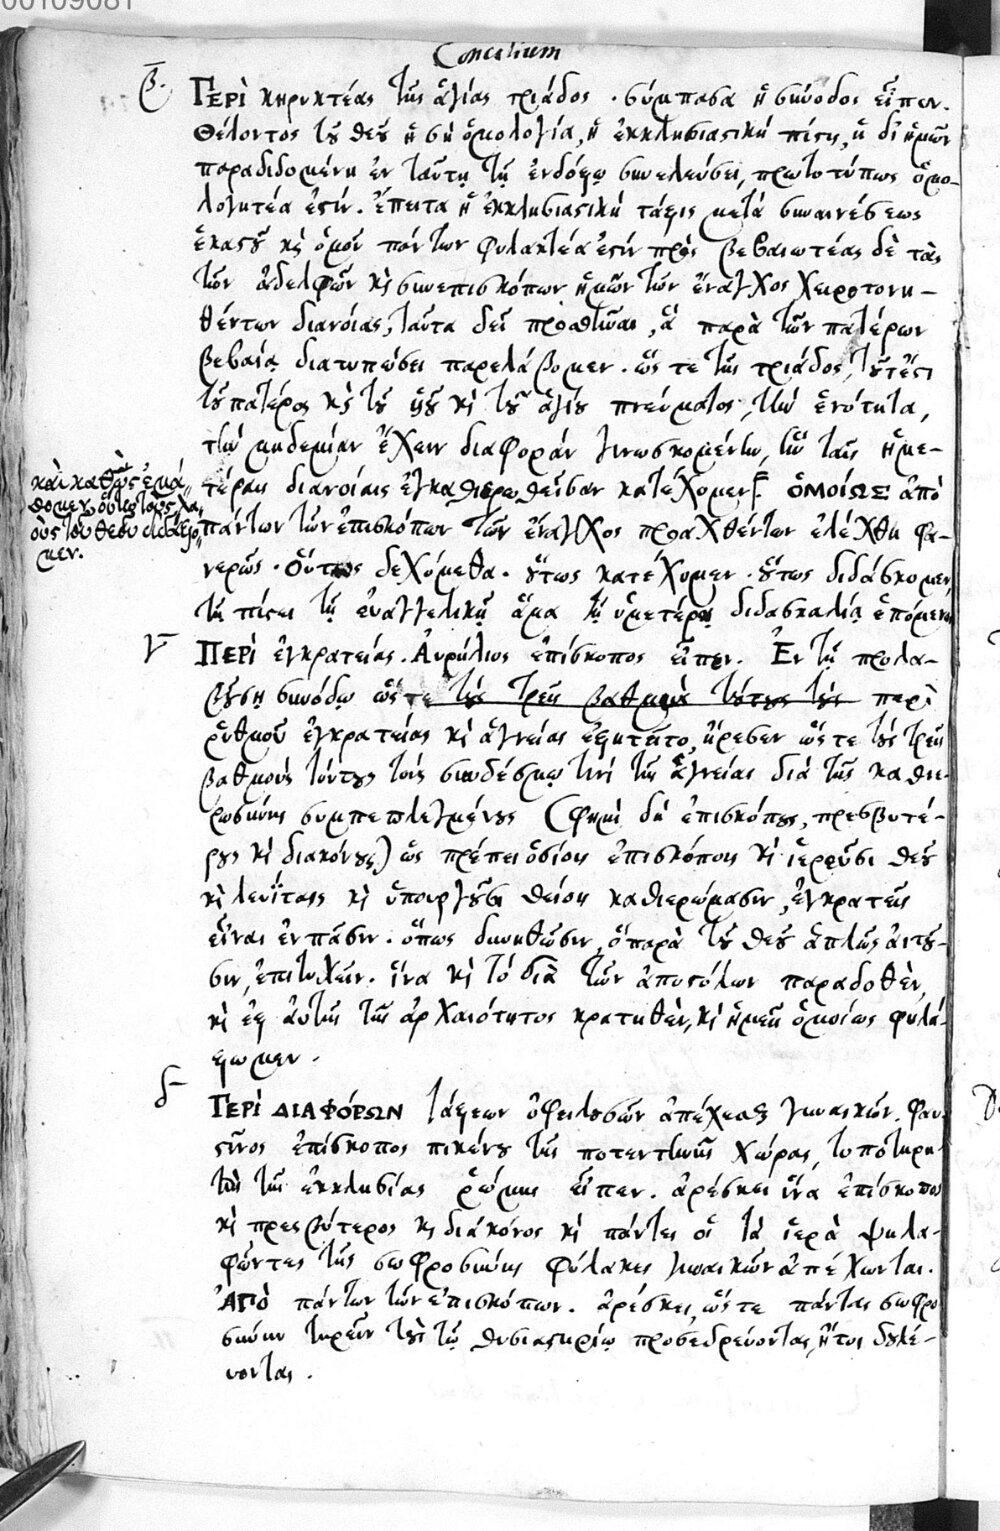 00109081
Concilium
β. Περὶ κηρυκτέας τῆς ἁγίας τριάδος · σύμπασα ἡ σύνοδος εἶπεν.
Θέλοντος τοῦ θεοῦ ἡ σὴ ὁμολογία, ἡ ἐκκλησιαστικὴ πίστις, ἡ δι' ἡμῶν
παραδιδομένη ἐν ταύτῃ τῇ ἐνδόξῳ συνελεύσει, πρωτοτύπως ὁμο-
λογητέα ἐστίν. ἔπειτα ἡ ἐκκλησιαστικὴ τάξις μετὰ συναινέσεως
ἑκάστου κὶ ὁμοῦ πάντων φυλακτέα ἐστὶν πρὸς βεβαιωτέας δὲ τὰς
τῶν ἀδελφῶν κὶ συνεπισκόπων ἡμῶν τῶν ἔναγχος χειροτονη-
θέντων διανοίας, ταῦτα δεῖ προσθεῖναι, ἃ παρὰ τῶν πατέρων
βεβαίᾳ διατυπώσει παρελάβομεν. ὥστε τῆς τριάδος, τουτέστι
τοῦ πατρὸς κὶ τοῦ υἱοῦ κὶ τοῦ ἁγίου πνεύματος, τὴν ἑνότητα,
τὴν μηδεμίαν ἔχειν διαφορὰν γινωσκομένην, ταῖς ἡμε-
τέραις διανοίαις ἐγκαθιερωθεῖσαν κατέχομεν. ὁμοίως ἀπὸ
καὶ καθὼς ἐμά-
θομεν, οὕτως τοὺς λα-
οὺς τοῦ θεοῦ διδάξο-
μεν.
πάντων τῶν ἐπισκόπων τῶν ἔναγχος προαχθέντων ἐλέχθη φα-
νερῶς · οὕτως δεχόμεθα · οὕτως κατέχομεν · οὕτως διδάσκομεν,
τῇ πίστει τῇ εὐαγγελικῇ ἅμα τῇ ὑμετέρᾳ διδασκαλίᾳ ἑπόμενοι
γ Περὶ ἐγκρατείας. Αὐρήλιος ἐπίσκοπος εἶπεν. Ἐν τῇ προλα-
βούσῃ συνόδῳ ὥστε τοὺς τρεῖς βαθμοὺς τούτους τοὺς περὶ
ῥυθμοῦ ἐγκρατείας κὶ ἁγνείας ἐζητεῖτο, ἤρεσεν ὥστε τοὺς τρεῖς
βαθμοὺς τούτους τοὺς συνδέσμῳ τινὶ τῆς ἁγνείας διὰ τῆς καθιε-
ρωσύνης συμπεπλεγμένους (φημὶ δὴ ἐπισκόπους, πρεσβυτέ-
ρους κὶ διακόνους) ὡς πρέπει ὁσίοις ἐπισκόποις κὶ ἱερεῦσι θεοῦ
κὶ λευΐταις κὶ ὑπουργοῦσι θείοις καθιερώμασιν, ἐγκρατεῖς
εἶναι ἐν πᾶσιν. ὅπως δυνηθῶσιν, ὃ παρὰ τοῦ θεοῦ ἁπλῶς αἰτοῦ-
σιν, ἐπιτυχεῖν. ἵνα κὶ τὸ διὰ τῶν ἀποστόλων παραδοθὲν,
κὶ ἐξ αὐτῆς τῆς ἀρχαιότητος κρατηθὲν, κὶ ἡμεῖς ὁμοίως φυλά-
ξωμεν.
δ Περὶ διαφόρων τάξεων ὀφειλουσῶν ἀπέχεσθαι γυναικῶν. Φαυ-
στῖνος ἐπίσκοπος πικένου τῆς ποτεντίνης χώρας, τοποτηρη-
τὴς τῆς ἐκκλησίας ῥώμης εἶπεν. ἀρέσκει ἵνα ἐπίσκοπος
κὶ πρεσβύτερος κὶ διάκονος κὶ πάντες οἱ τὰ ἱερὰ ψηλα-
φῶντες τῆς σωφροσύνης φύλακες γυναικῶν ἀπέχωνται.
Ἀπὸ πάντων τῶν ἐπισκόπων. ἀρέσκει, ὥστε πάντας σωφρο-
σύνην τηρεῖν τοὺς τῷ θυσιαστηρίῳ προσεδρεύοντας, ἤτοι δουλε-
ύοντας.